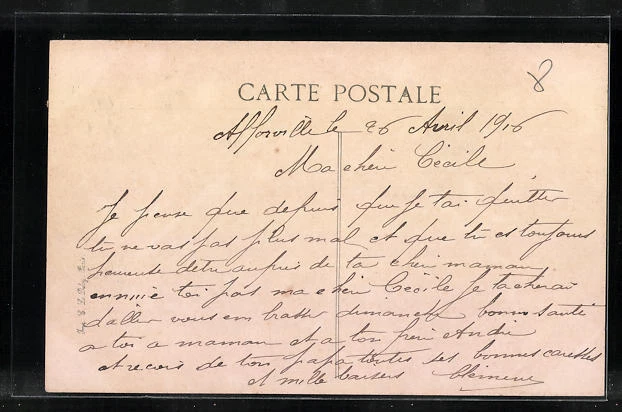 8
CARTE POSTALE
Alforville le 26 Avril 1916
Ma cheri Cécile
Je pense que depuis que je tai quitter
tu ne vas pas plus mal et que tu es toujours
heureuse detre aupres de ta cheri maman
ennuie toi pas ma cheri Cécile Je tacherai
daller vous embrasser dimanche bonne santé
a toi a maman et a ton frère André
et recois de ton papa toutes ses bonnes caresses
et mille baisers Clémence